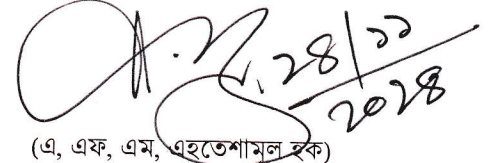 ২৪/১১
২০২৪
(এ, এফ, এম, এহতেশামূল হক)